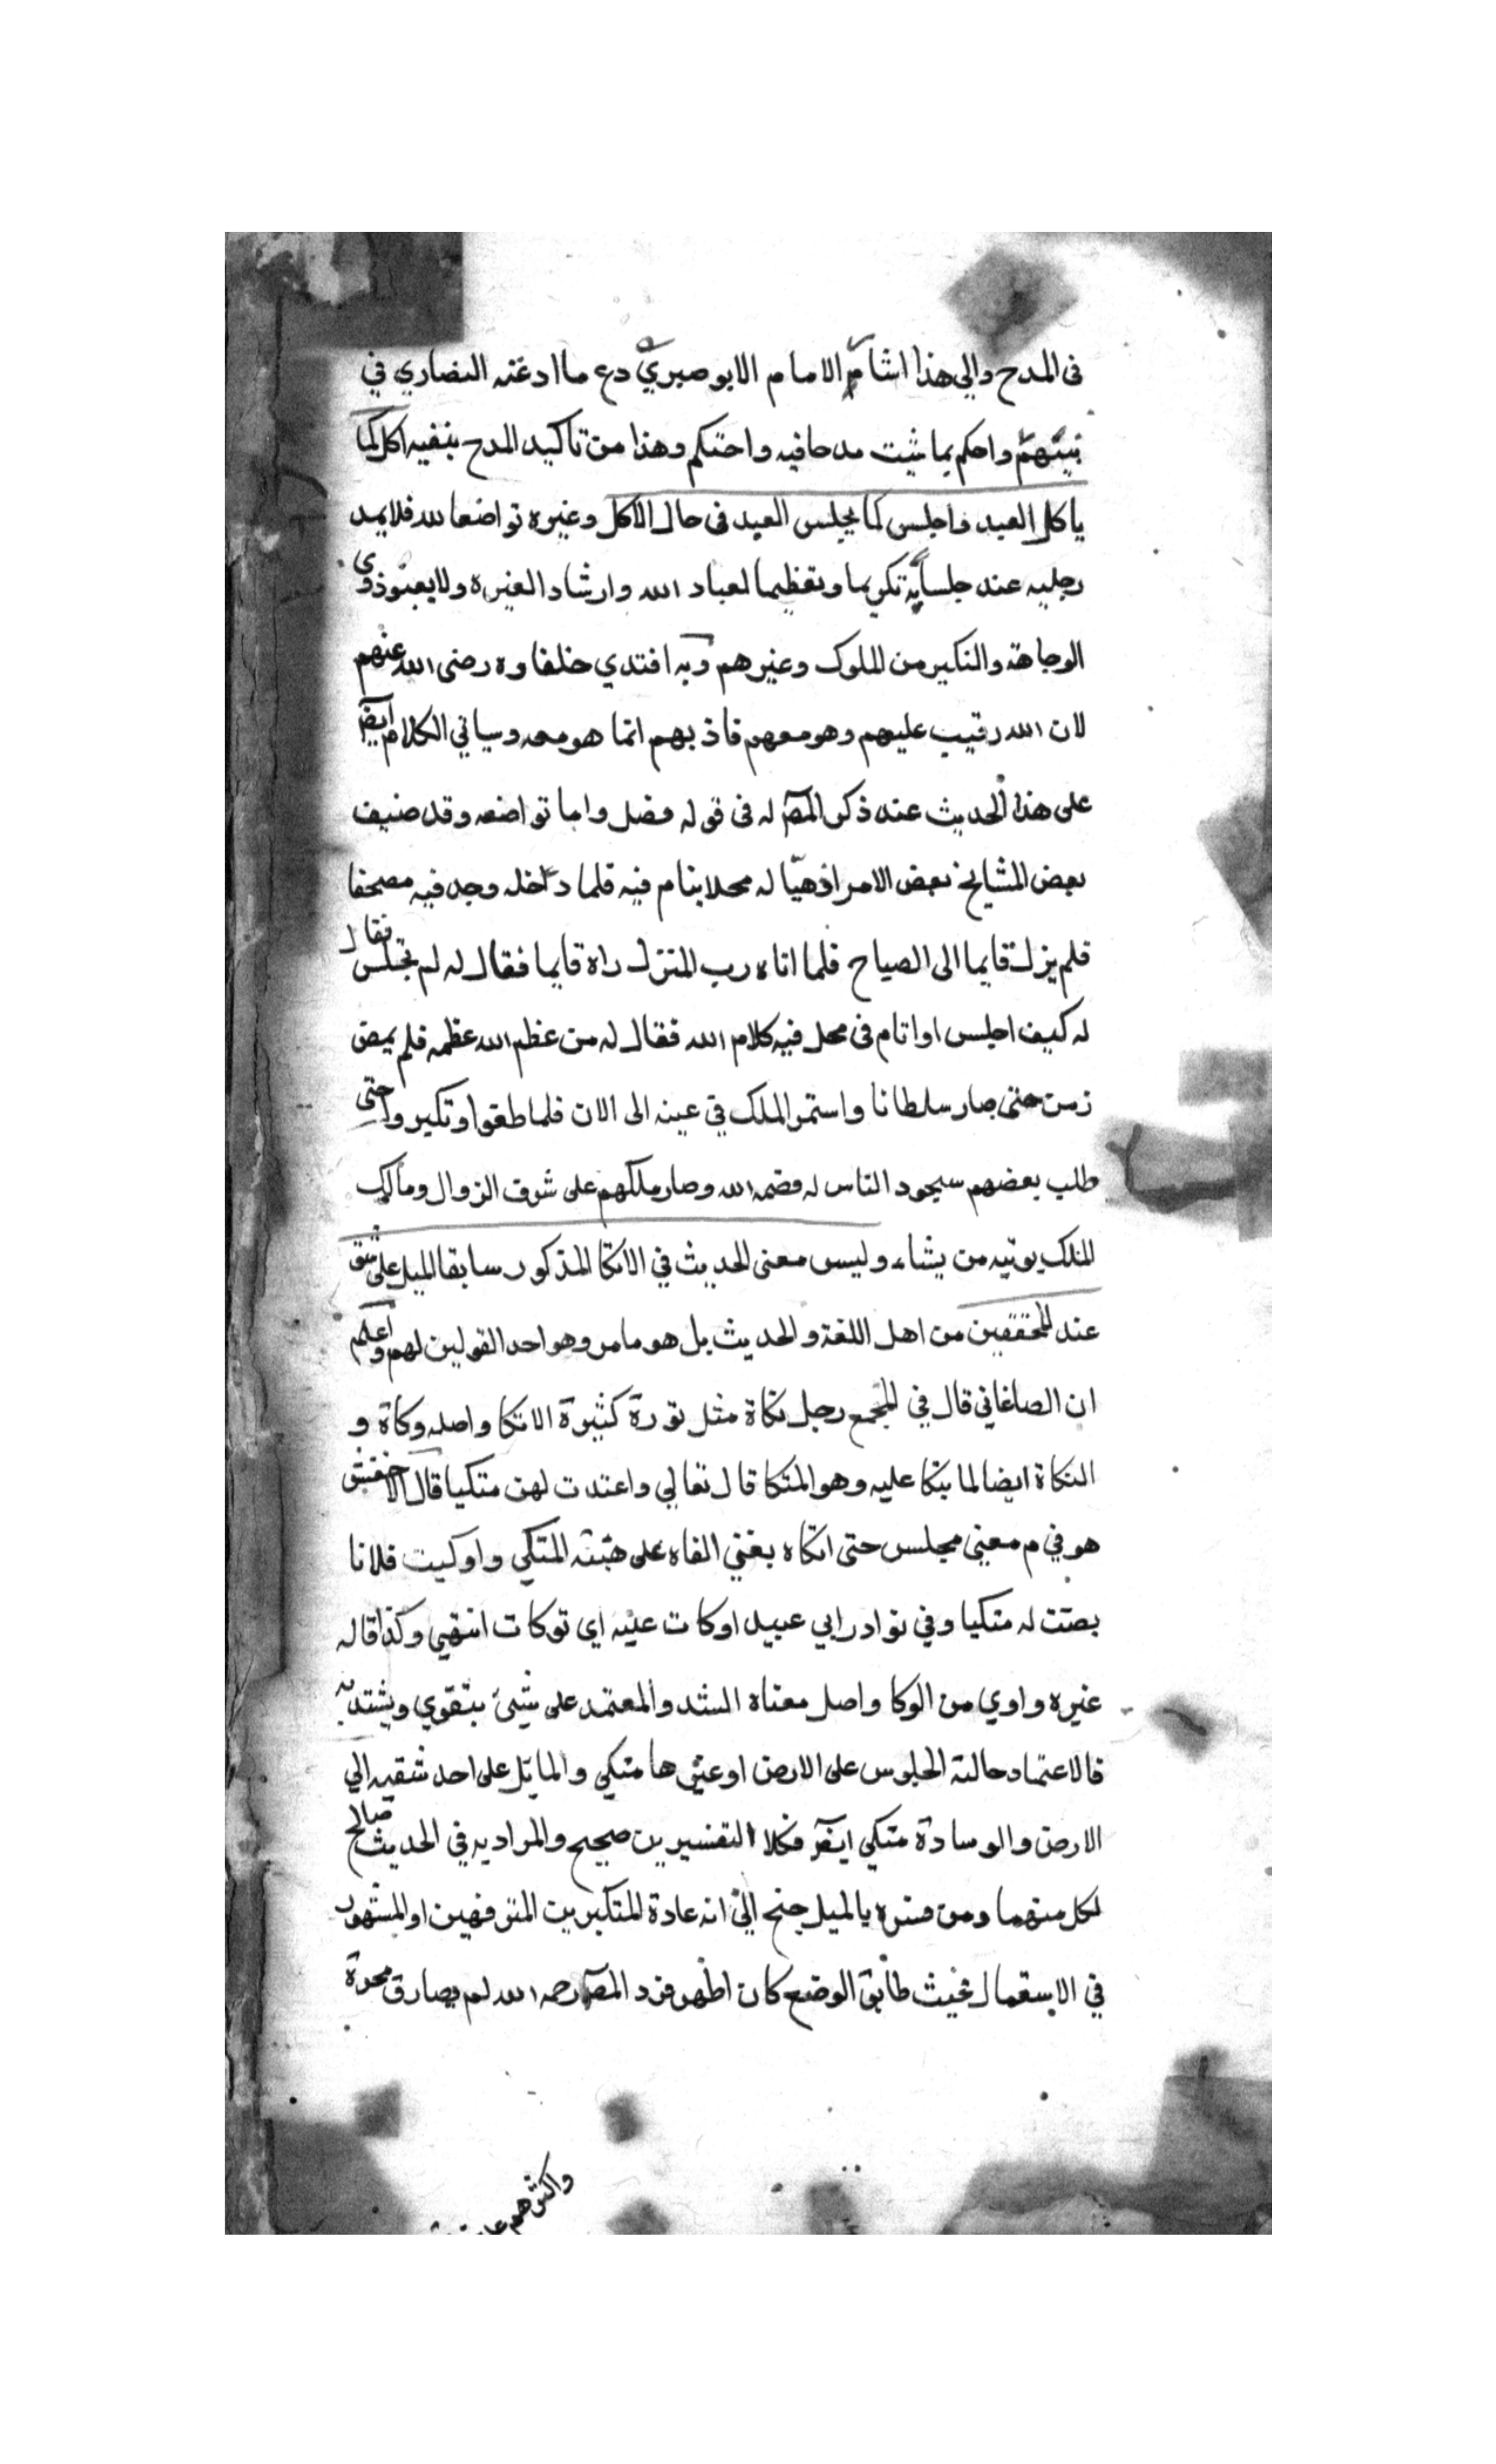 فى المدح والى هذا اشار الامام الابوصيري دع ما ادعته النصاري في
نبيهم واحكم بما شيت مدحا فيه واحتكم وهذا من تاكيد المدح بنفيه اكل كما
ياكل العبد فاجلس كما يجلس العبد فى حال الاكل وغيره تواضعا لله فلا يمد
رجليه عند جلسايه تكريما وتعظيما لعباد الله وارشاد الغيره ولا يعبو ذوي
الوجاهة والتكبر من الملوك وغيرهم وبه اقتدي خلفاوه رضى الله عنهم
لان الله رقيب عليهم وهو معهم فاذ بهم انما هو معه وسياتي الكلام ايضا
على هذا الحديث عند ذكر المص له فى قوله فصل واما تواضعه وقد ضيف
بعض المشايخ بعض الامراء فهيّا له محلا ينام فيه فلما دخله وجد فيه مصحفا
فلم يزل قايما الى الصباح فلما اتاه رب المنزل راه قايما فقال له لم تجلس فقال
له كيف اجلس او اتام فى محل فيه كلام الله فقال له من عظم الله عظمه فلم يمض
زمن حتى صار سلطانا واستمر الملك في عينه الى الان فلما طغوا وتكبروا حتى
طلب بعضهم سجود الناس له قصمه الله وصار ملكهم على شرف الزوال ومالك
الملك يوتيه من يشاء وليس معنى الحديث في الاتكا المذكور سابقا الميل على شق
عند المحققين من اهل اللغة والحديث بل هو ما مر وهو احد القولين لهم واعلم
ان الصاغاني قال في المجمع رجل تكاة مثل تودة كثيرة الاتكا واصله وكاة و
التكاة ايضا لما يتكا عليه وهو المتكا قال تعالي واعتدت لهن متكيا قال الاخفش
هو في م معنى مجلس حتى اتكاه يعني القاه على هيئة المتكي واوكيت فلانا
نصبت له متكيا وفي نوادر ابي عبيد اوكات عليه اي توكات انتهي وكذا قاله
غيره واوي من الوكا واصل معناه الشد والمعتمد على شيئ يتقوي ويشتد به
فالاعتماد حالة الجلوس على الارض او غيرها متكي والمايل على احد شقيه الي
الارض والوسادة متكي ايضا فكلا التفسيرين صحيح والمراد به في الحديث صالح
لكل منهما ومن فسره بالميل جنح الي انه عادة المتكبرين المترفهين او المشهور
في الاستعمال فحيث طابق الوضع كان اظهر فرد المص رحمه الله لم يصادق محزة
واكثرهم